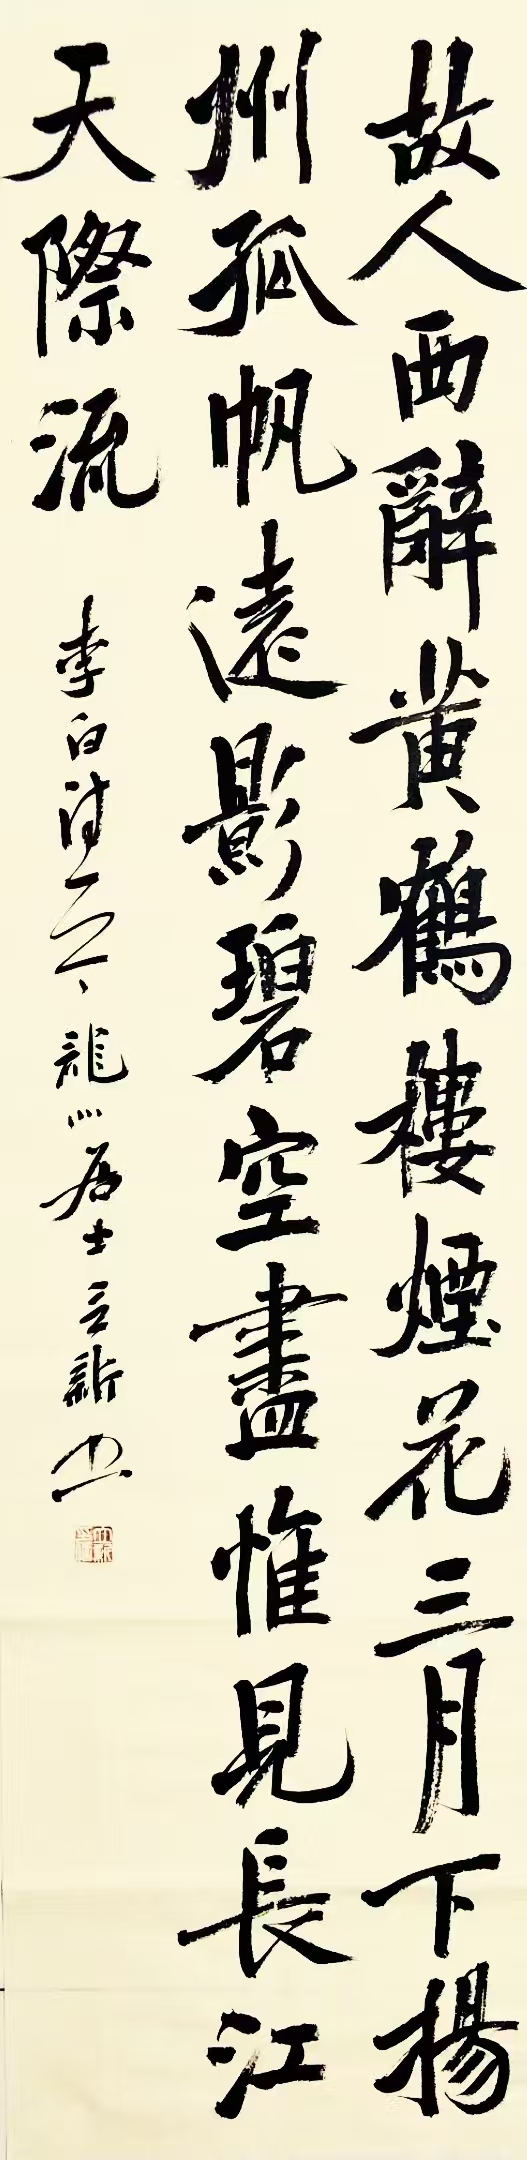 故人西辭黃鶴樓煙花三月下揚
州孤帆遠影碧空盡惟見長江
天際流
李白詩一首龍川居士立新書